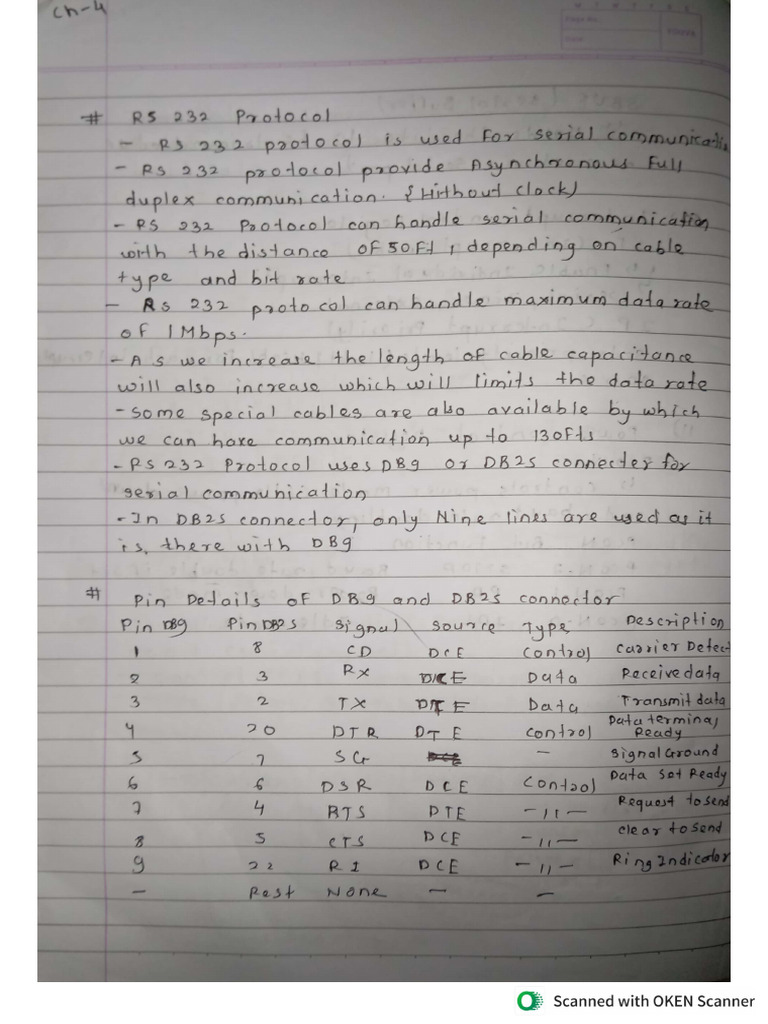 Ch-4
# RS 232 Protocol
- RS 232 protocol is used For serial communicatio
- RS 232 protocol provide Asynchronous Full
duplex communication. {Hithout clock)
- RS 232 Protocol can handle serial communication
with the distance OF 50Ft, depending on cable
type and bit rate
- RS 232 protocol can handle maximum data rate
of 1Mbps.
- As we increase the length of cable capacitance
will also increase which will limits the data rate
- Some special cables are also available by which
we can have communication up to 130Fts
- RS 232 Protocol uses DB9 or DB25 connecter for
serial communication
- In DB25 connector, only Nine lines are used as it
is, there with DB9
# Pin Details OF DB9 and DB25 connoctor
Pin DB9 Pin DB25 Signal Source Type Description
1 8 CD DCE Control Carrier Detect
2 3 RX DCE Data Receive data
3 2 TX DTE Data Transmit data
4 20 DTR DTE Control Data terminal Ready
5 7 SG - Signal Ground
6 6 DSR DCE Control Data Set Ready
7 4 RTS DTE -〃- Request to send
8 5 CTS DCE -〃- clear to send
9 22 RI DCE -〃- Ring Indicator
- Rest None - -
Scanned with OKEN Scanner